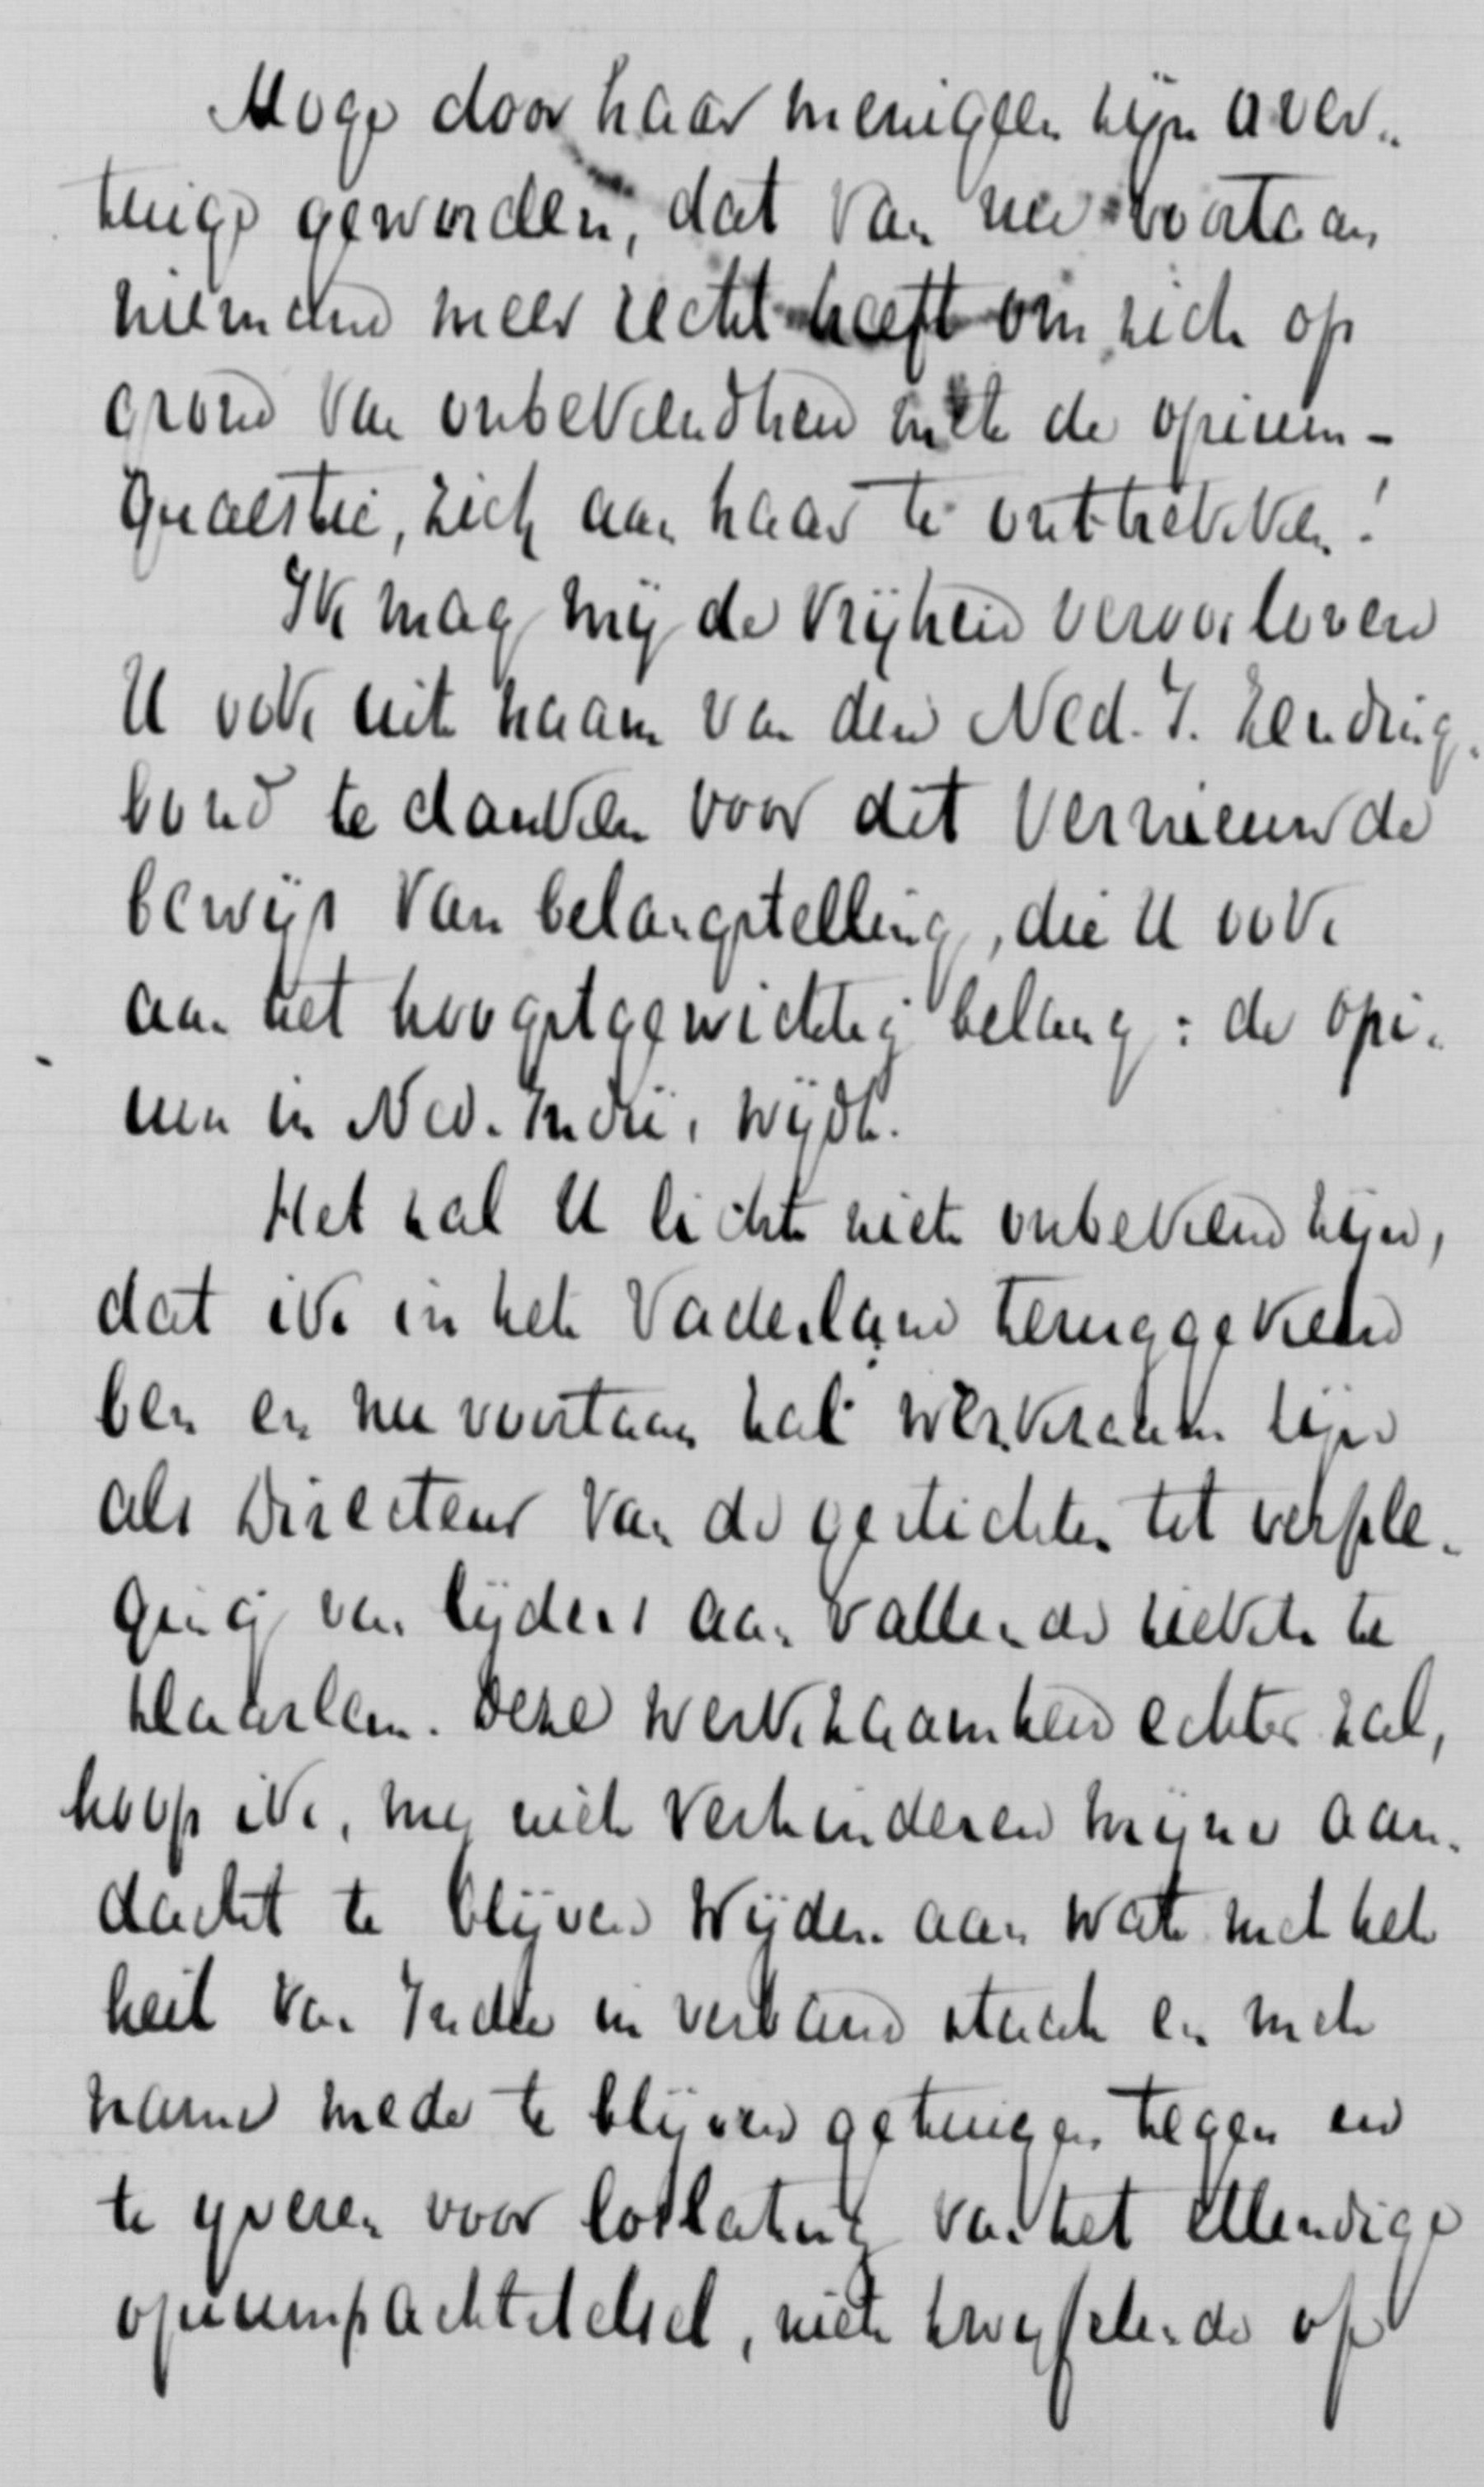 Moge door haar menigeen zijn over-
tuigd geworden, dat van nu voortaan
niemand meer recht heeft om zich op
grond van onbekendheid met de opium-
quaestie, zich aan haar te onttrekken!
Ik mag mij de vrijheid veroorloven
U ook uit naam van den Ned. I. Zending-
bond te danken voor dit vernieuwde
bewijs van belangstelling, die U ook
aan het hoogstgewichtig belang: de opi-
um in Ned. Indië, wijdt.
Het zal U licht niet onbekend zijn,
dat ik in het Vaderland teruggekeerd
ben en nu voortaan zal werkzaam zijn
als Directeur van de gestichten tot verple-
ging van lijders aan vallende ziekte te
Haarlem. Deze werkzaamheid echter zal,
hoop ik, mij niet verhinderen mijne aan-
dacht te blijven wijden aan wat met het
heil van Indië in verband staat en met
name mede te blijven getuigen tegen en
te yveren voor loslating van het ellendige
opiumpachtstelsel, niet twyfelende of